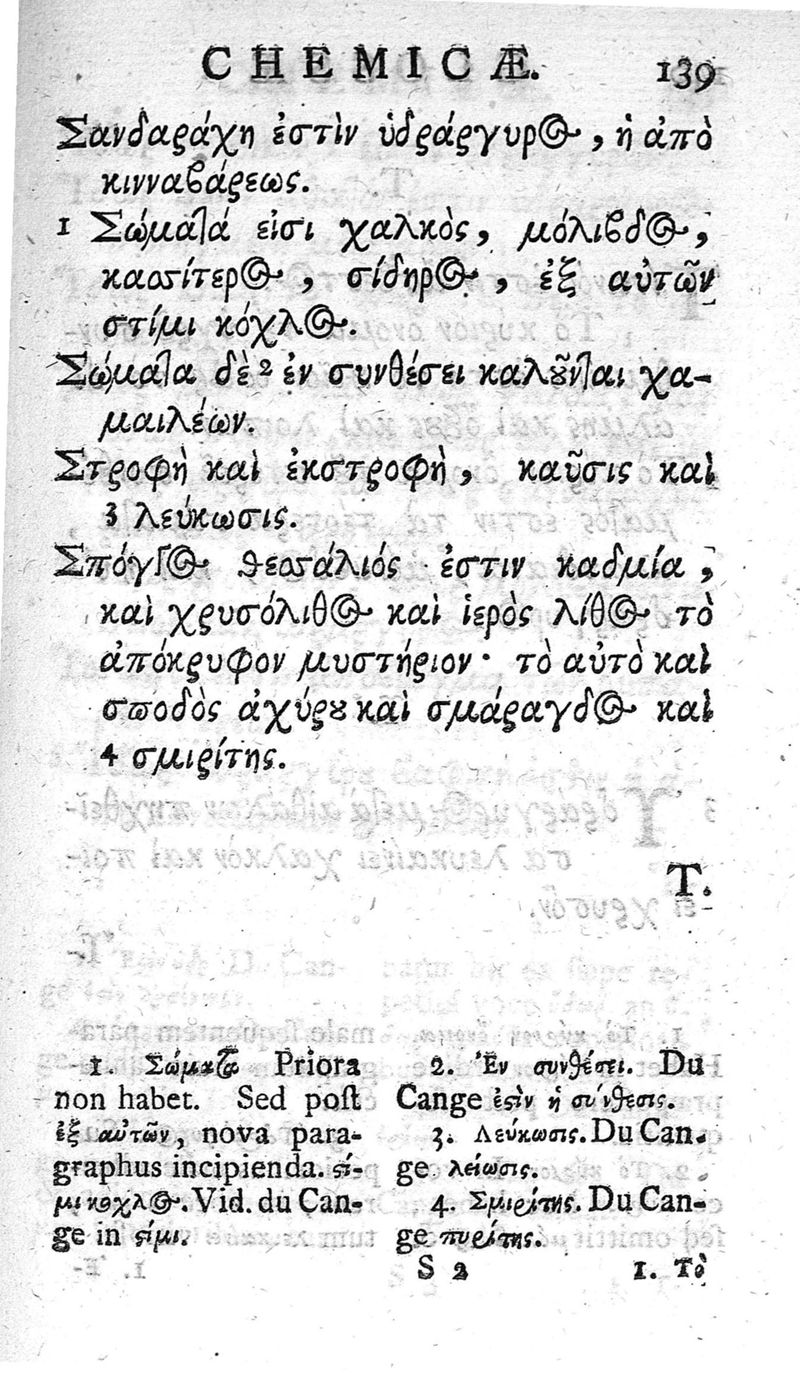 CHEMICÆ. 139
Σανδαράχη ἐστὶν ὑδράργυρος, ἡ ἀπὸ
κινναβάρεως.
1 Σώματά εἰσι χαλκὸς, μόλιβδος,
κασσίτερος, σίδηρος, ἐξ αὐτῶν
στίμι κόχλος.
Σώματα δὲ 2 ἐν συνθέσει καλοῦνται χα-
μαιλέων.
Στροφὴ καὶ ἐκστροφὴ, καῦσις καὶ
3 λεύκωσις.
Σπόγγος θεστάλιός ἐστιν καδμία,
καὶ χρυσόλιθος καὶ ἱερὸς λίθος τὸ
ἀπόκρυφον μυστήριον· τὸ αὐτὸ καὶ
σποδὸς ἀχύρου καὶ σμάραγδος καὶ
4 σμιρίτης.
T.
1. Σώματα Priora
non habet. Sed poſt
ἐξ αὐτῶν, nova para-
graphus incipienda. στί-
μι κοχλος. Vid. du Can-
ge in στίμι.
2. Ἐν συνθέσει. Du
Cange ἐστὶν ἡ σύνθεσις.
3. Λεύκωσις. Du Can-
ge λείωσις.
4. Σμιρίτης. Du Can-
ge πυρίτης.
S 2 1. Τὸ